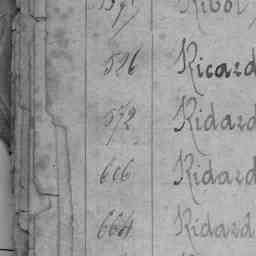 586 Ricard
572 Ridard
606 Ridard
664 Ridard